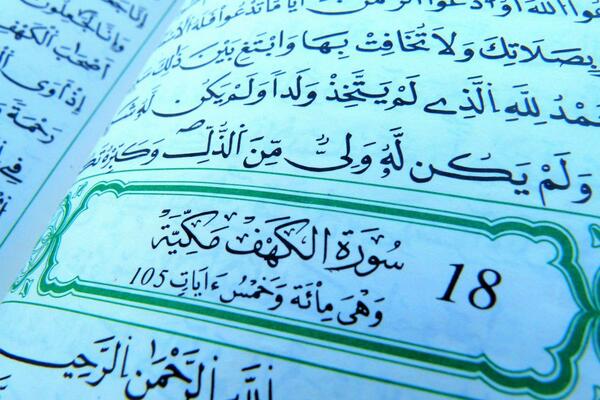 اُ۟دْعُوا۟ اللَّهَ أَوُ اُ۟دْعُوا۟ أَيًّا مَّا تَدْعُوا۟ فَلَهُ
بِصَلَاتِكَ وَلَا تُخَافِتْ بِهَا وَابْتَغِ بَيْنَ ذَٰلِكَ
لِلَّهِ الَّذِے لَمْ يَتَّخِذْ وَلَدًا وَلَمْ يَكُن لَّهُ
وَلَمْ يَكُن لَّهُ وَلِىٌّ مِّنَ الذُّلِّ وَكَبِّرْهُ
سُورَةُ الْكَهْفِ مَكِّيَّة 18
وَهْىَ مِاْئَة وَخَمْسُ ءَايَاتٍ 105
اللَّهِ الرَّحْمَٰنِ الرَّحِيمِ
إِنَّا
وَإِنَّا لَجَاعِلُونَ
أَصْحَابَ الْكَهْفِ
إِذْ أَوَى
رَحْمَةً
فِے